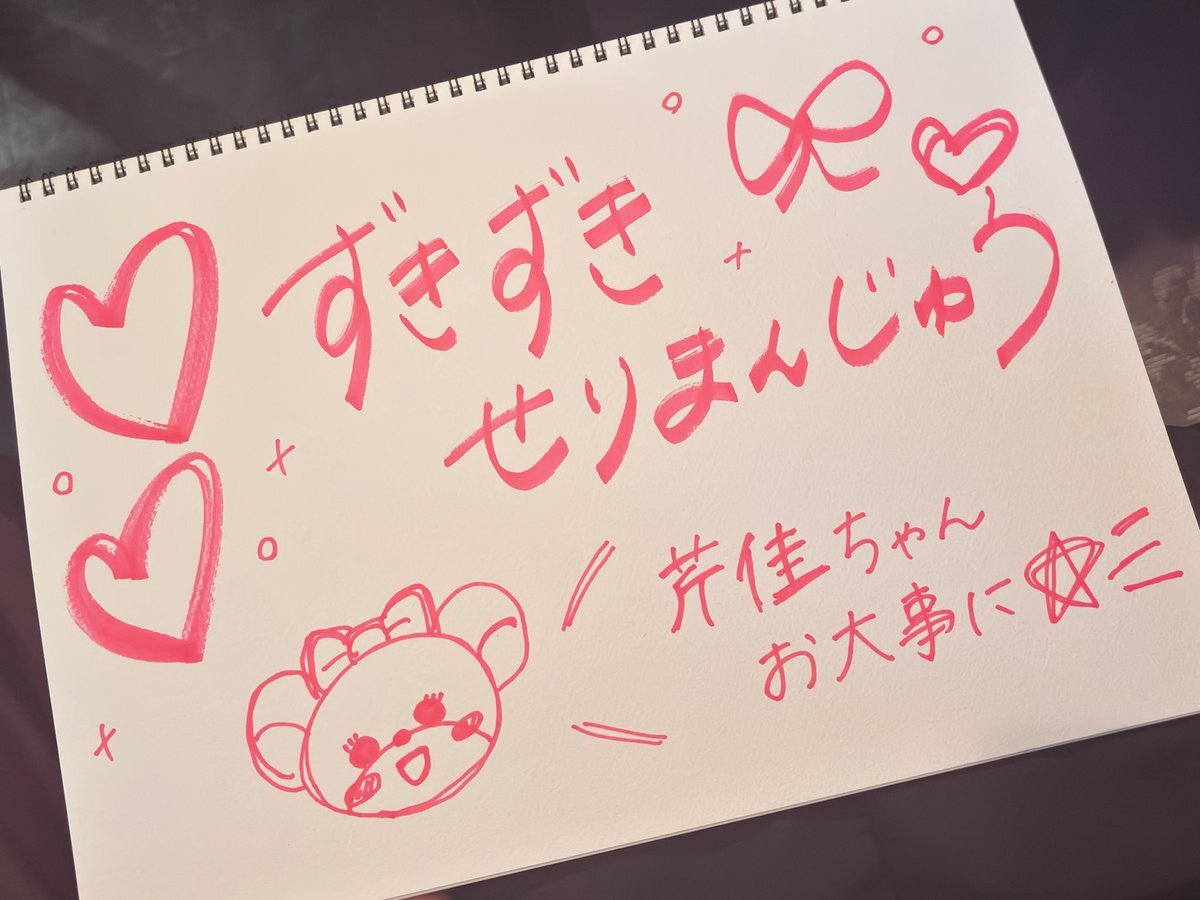 ずきずき
せりまんじゅう
芹佳ちゃん
お大事に☆ミ